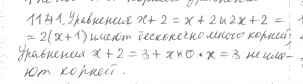 1141. Уравнения x + 2 = x + 2 и 2x + 2 =
= 2(x+1) имеют бесконечно много корней,
Уравнения x + 2 = 3 + x и 0 • x = 3 не име-
ют корней.